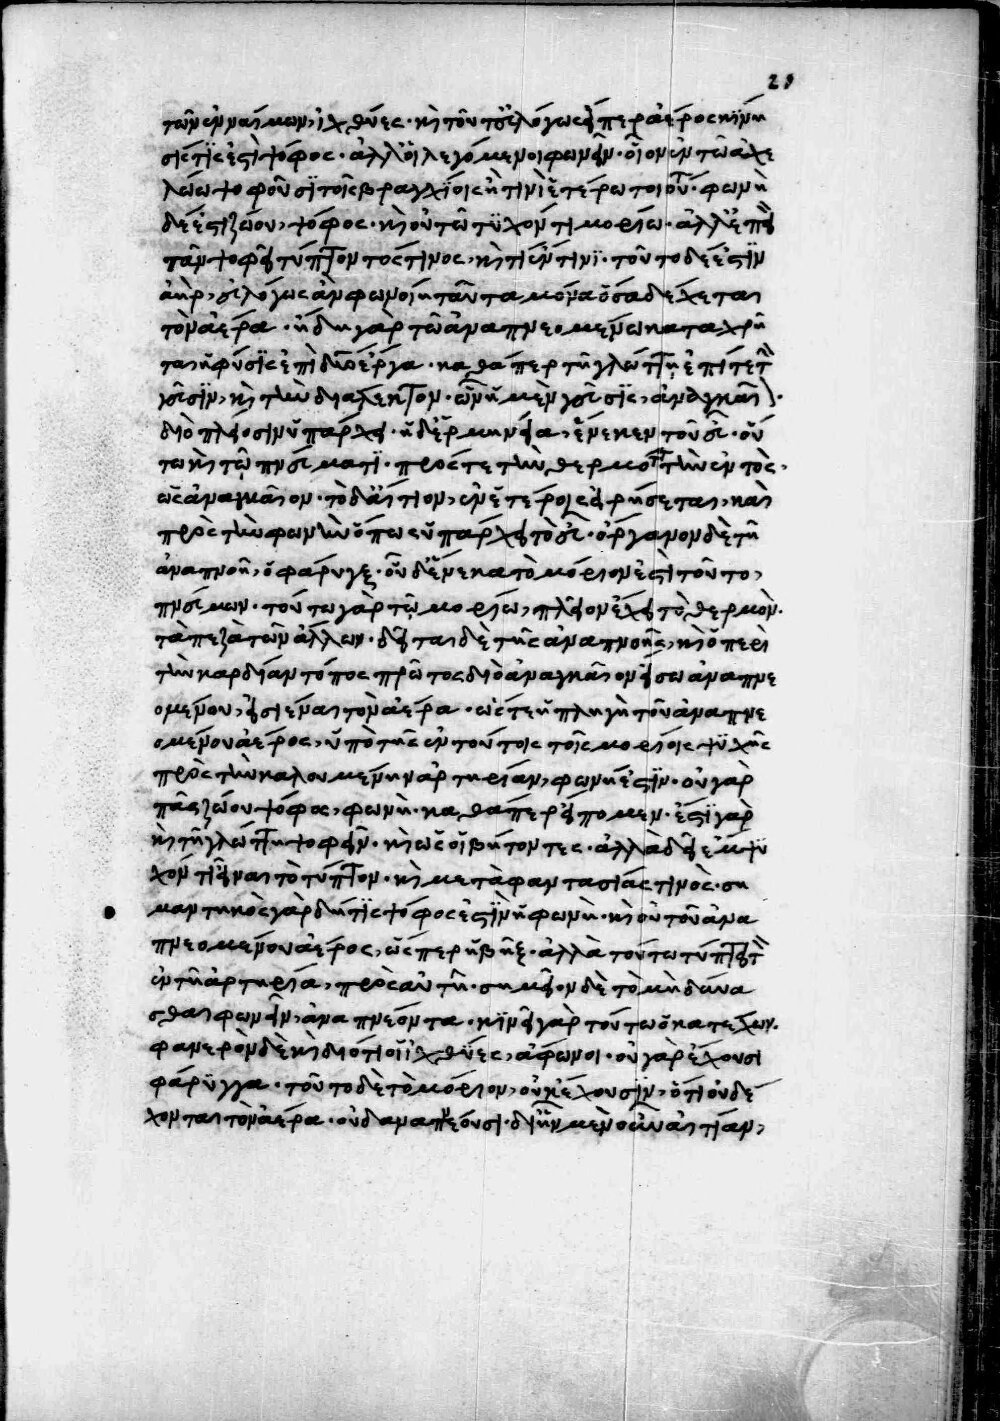 29
τῶν ἐναίμων, ἰχθύες· καὶ τοῦτ' εὐλόγως εἴπερ ἀέρος κίνη
σίς τίς ἐστι ψόφος· ἀλλ' οἱ λεγόμενοι φωνεῖν· οἷον ἐν τῶ ἀχε
λώω ψοφοῦσι τοῖς βραγχίοις ἤ τινι ἑτέρω τοιούτ· φωνὴ
δέ ἐστι ζώου, ψόφος· καὶ οὐ τῶ τυχόντι μορίω· ἀλλ' ἐπεὶ
πᾶν ψοφεῖ τύπτοντός τινος, καί τι ἔν τινι· τοῦτο δέ ἐστιν
ἀὴρ, εὐλόγως ἂν φωνοίη ταῦτα μόνα ὅσα δέχεται
τὸν ἀέρα· ἤδη γὰρ τῶ ἀναπνεομένω καταχρῆ
ται ἡ φύσις ἐπὶ δύο ἔργα· καθάπερ τῆ γλώττη ἐπί τε τ
γεῦσιν, καὶ τὴν διάλεκτον· ὧν ἡ μὲν γεῦσις, ἀναγκαῖ
διὸ πλείοσιν ὑπάρχει· ἡ δ' ἑρμηνεία, ἕνεκεν τοῦ εὖ· οὕ
τω καὶ τῶ πνεύματι· πρός τε τὴν θερμότητα τὴν ἐντὸς,
ὡς ἀναγκαῖον· τὸ δ' αἴτιον, ἐν ἑτέροις εἰρήσεται, καὶ
πρὸς τὴν φωνὴν ὅπως ὑπάρχει τὸ εὖ· ὄργανον δὲ τῆ
ἀναπνοῆ, ὁ φάρυγξ· οὗ δ' ἕνεκα τὸ μόριόν ἐστι τοῦτο,
πνεύμων· τούτω γὰρ τῶ μορίω, πλεῖον ἔχει τὸ θερμὸν·
τὰ πεζὰ τῶν ἄλλων· δεῖται δὲ τῆς ἀναπνοῆς, καὶ ὁ περὶ
τὴν καρδίαν τόπος πρῶτος διὸ ἀναγκαῖον εἴσω ἀναπνε
ομένου, εἰσιέναι τὸν ἀέρα· ὥστε ἡ πληγὴ τοῦ ἀναπνε
ομένου ἀέρος, ὑπὸ τῆς ἐν τούτοις τοῖς μορίοις ψυχῆς
πρὸς τὴν καλουμένην ἀρτηρίαν, φωνή ἐστιν· οὐ γὰρ
πᾶς ζώου ψόφος, φωνὴ· καθάπερ εἴπομεν· ἔστι γὰρ
καὶ τῆ γλώττη ψοφεῖν· καὶ ὡς οἱ βήττοντες· ἀλλὰ δεῖ ἔμψυ
χόν τι εἶναι τὸ τύπτον· καὶ μετὰ φαντασίας τινὸς· ση
μαντικὸς γὰρ δή τις ψόφος ἐστὶν ἡ φωνὴ· καὶ οὐ τοῦ ἀνα
πνεομένου ἀέρος, ὥσπερ ἡ βὴξ· ἀλλὰ τούτω τύπτει τ
ἐν τῆ ἀρτηρία, πρὸς αὐτὴν· σημεῖον δὲ τὸ μὴ δύνα
σθαι φωνεῖν, ἀναπνέοντα· κινεῖ γὰρ τούτω ὁ κατέχων·
φανερὸν δὲ καὶ διότι οἱ ἰχθύες, ἄφωνοι· οὐ γὰρ ἔχουσι
φάρυγγα· τοῦτο δὲ τὸ μόριον, οὐκ ἔχουσιν, ὅτι οὐ δέ
χονται τὸν ἀέρα· οὐδ' ἀναπνέουσι· δι' ἣν μὲν οὖν αἰτίαν,